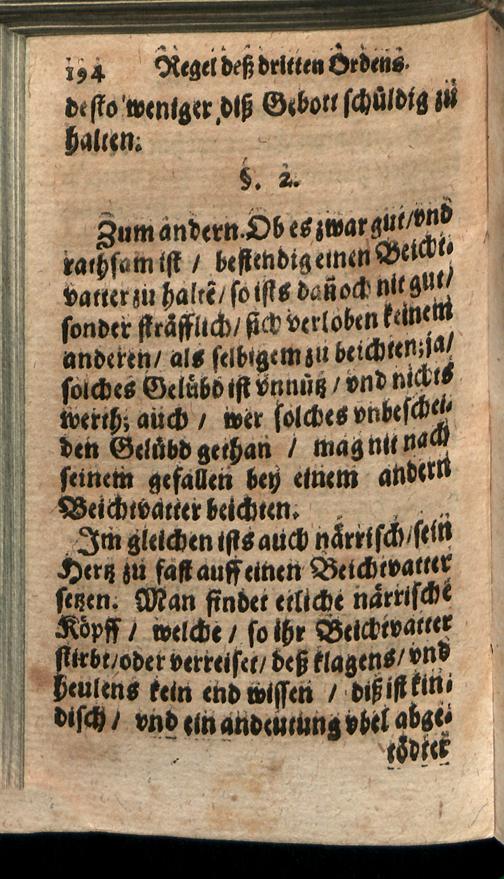 194 Regel deß dritten Ordens.
desto weniger diß Gebott schüldig zü
halten.
§. 2.
Zum andern. Ob es zwar gut/vnd
rathsam ist / bestendig einen Beicht-
vatter zu haltẽ/ so ists dañoch nit gut/
sonder sträfflich/ sich verloben keinem
anderen/ als selbigem zu beichten; ja/
solches Gelübd ist vnnütz / vnd nichts
werth; auch / wer solches vnbeschei-
den Gelübd gethan / mag nit nach
seinem gefallen bey einem andern
Beichtvatter beichten.
Im gleichen ists auch närrisch/ sein
Hertz zu fast auff einen Beichtvatter
setzen. Man findet etliche närrische
Köpff / welche / so ihr Beichtvatter
stirbt/oder verreiset/ deß klagens/ vnd
heulens kein end wissen / diß ist kin-
disch / vnd ein andeutung vbel abge-
tödter